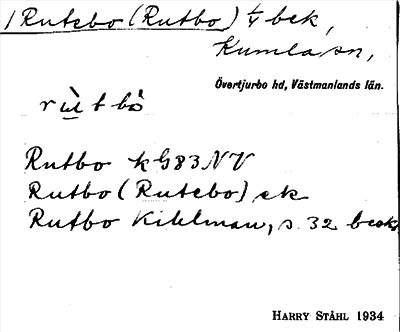 1 Rutebo (Rutbo) 1/4 bek,
Kumla sn,
Övertjurbo hd, Västmanlands län.
rùtbo
Rutbo k G83 NV
Rutbo (Rutebo) ek
Rutbo Kihlman, s. 32
HARRY STÅHL 1934